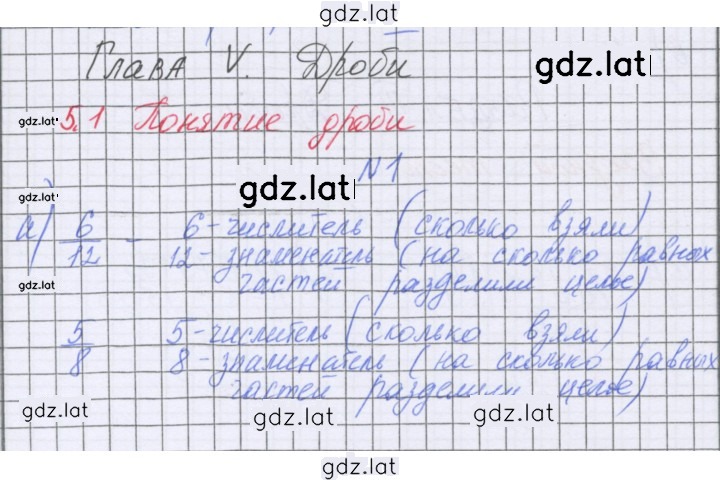 gdz.lat
Глава V. Дроби
gdz.lat
gdz.lat
5.1 Понятие дроби
№1
gdz.lat
gdz.lat
а) 6/12 - 6-числитель (сколько взяли)
12-знаменатель (на сколько равных
частей разделили целое)
gdz.lat
5/8 5-числитель (сколько взяли)
8-знаменатель (на сколько равных
частей разделили целое)
gdz.lat gdz.lat gdz.lat
gdz.lat